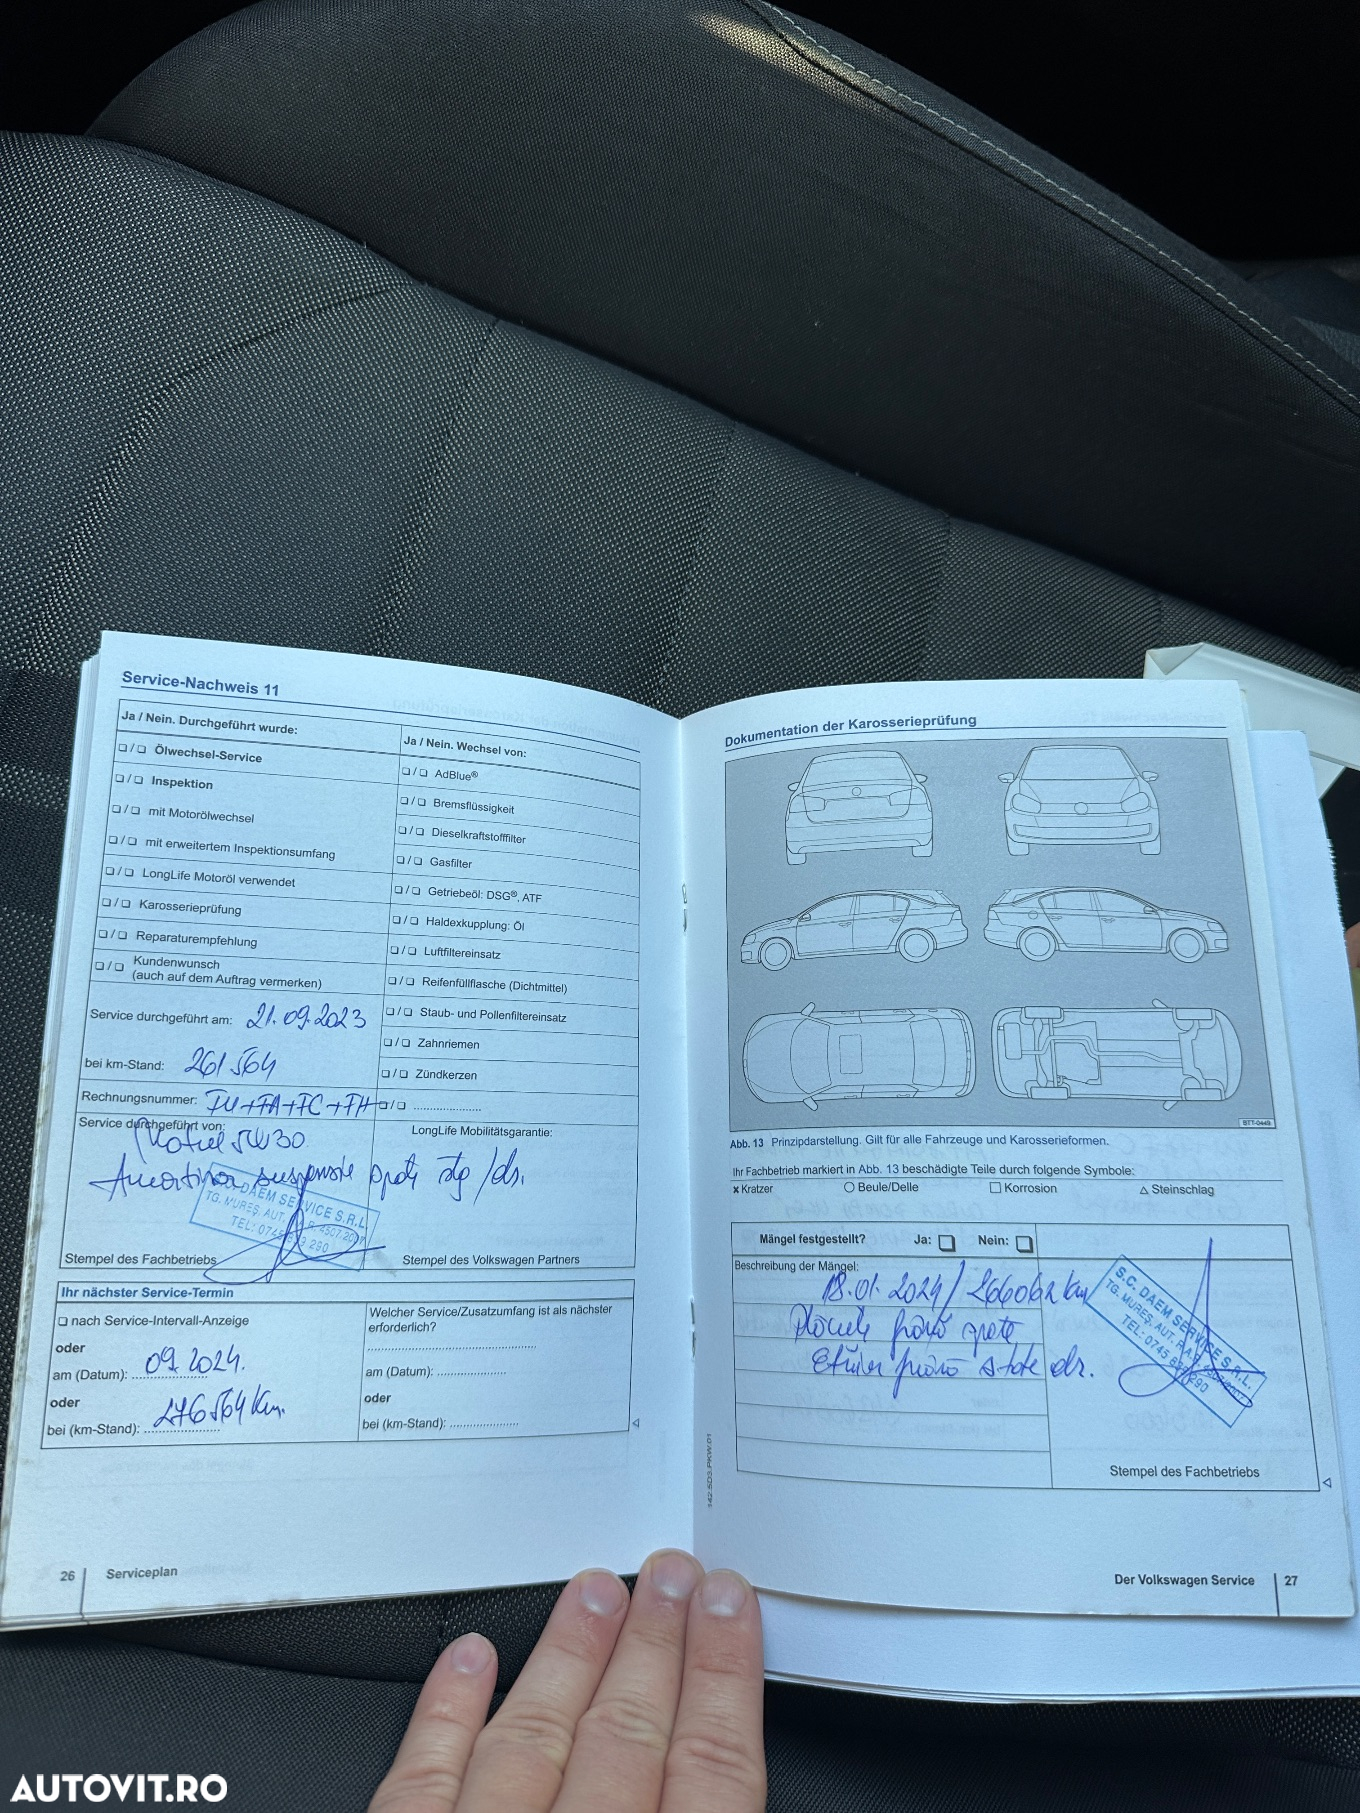 Service-Nachweis 11
Ja / Nein. Durchgeführt wurde:
❏ / ❏ Ölwechsel-Service
❏ / ❏ Inspektion
❏ / ❏ mit Motorölwechsel
❏ / ❏ mit erweitertem Inspektionsumfang
❏ / ❏ LongLife Motoröl verwendet
❏ / ❏ Karosserieprüfung
❏ / ❏ Reparaturempfehlung
❏ / ❏ Kundenwunsch
(auch auf dem Auftrag vermerken)
Service durchgeführt am: 21.09.2023
bei km-Stand: 261564
Rechnungsnummer: FU+FA+FC+FH
Service durchgeführt von:
Motul 5W30
Amortizor suspensie spate stg/dr.
S.C. DAEM SERVICE S.R.L.
TG. MUREȘ, AUT. R.A.R. 4507/2007
TEL: 0745 893 290
Stempel des Fachbetriebs
Ja / Nein. Wechsel von:
❏ / ❏ AdBlue®
❏ / ❏ Bremsflüssigkeit
❏ / ❏ Dieselkraftstofffilter
❏ / ❏ Gasfilter
❏ / ❏ Getriebeöl: DSG®, ATF
❏ / ❏ Haldexkupplung: Öl
❏ / ❏ Luftfiltereinsatz
❏ / ❏ Reifenfüllflasche (Dichtmittel)
❏ / ❏ Staub- und Pollenfiltereinsatz
❏ / ❏ Zahnriemen
❏ / ❏ Zündkerzen
❏ / ❏ ......................
LongLife Mobilitätsgarantie:
Stempel des Volkswagen Partners
Ihr nächster Service-Termin
❏ nach Service-Intervall-Anzeige
oder
am (Datum): 09.2024.
oder
bei (km-Stand): 276564 Km.
Welcher Service/Zusatzumfang ist als nächster
erforderlich?
am (Datum): ....................
oder
bei (km-Stand): ....................
26 Serviceplan
Dokumentation der Karosserieprüfung
BTT-0449
Abb. 13 Prinzipdarstellung. Gilt für alle Fahrzeuge und Karosserieformen.
Ihr Fachbetrieb markiert in Abb. 13 beschädigte Teile durch folgende Symbole:
x Kratzer ○ Beule/Delle □ Korrosion △ Steinschlag
Mängel festgestellt? Ja: ❏ Nein: ❏
Beschreibung der Mängel:
18.01.2024/266062 km
Plăcuțe frână spate
Etrier frână spate dr.
S.C. DAEM SERVICE S.R.L.
TG. MUREȘ, AUT. R.A.R. 4507/2007
TEL: 0745 893 290
Stempel des Fachbetriebs
142.5D3.PKW.01
Der Volkswagen Service 27
AUTOVIT.RO